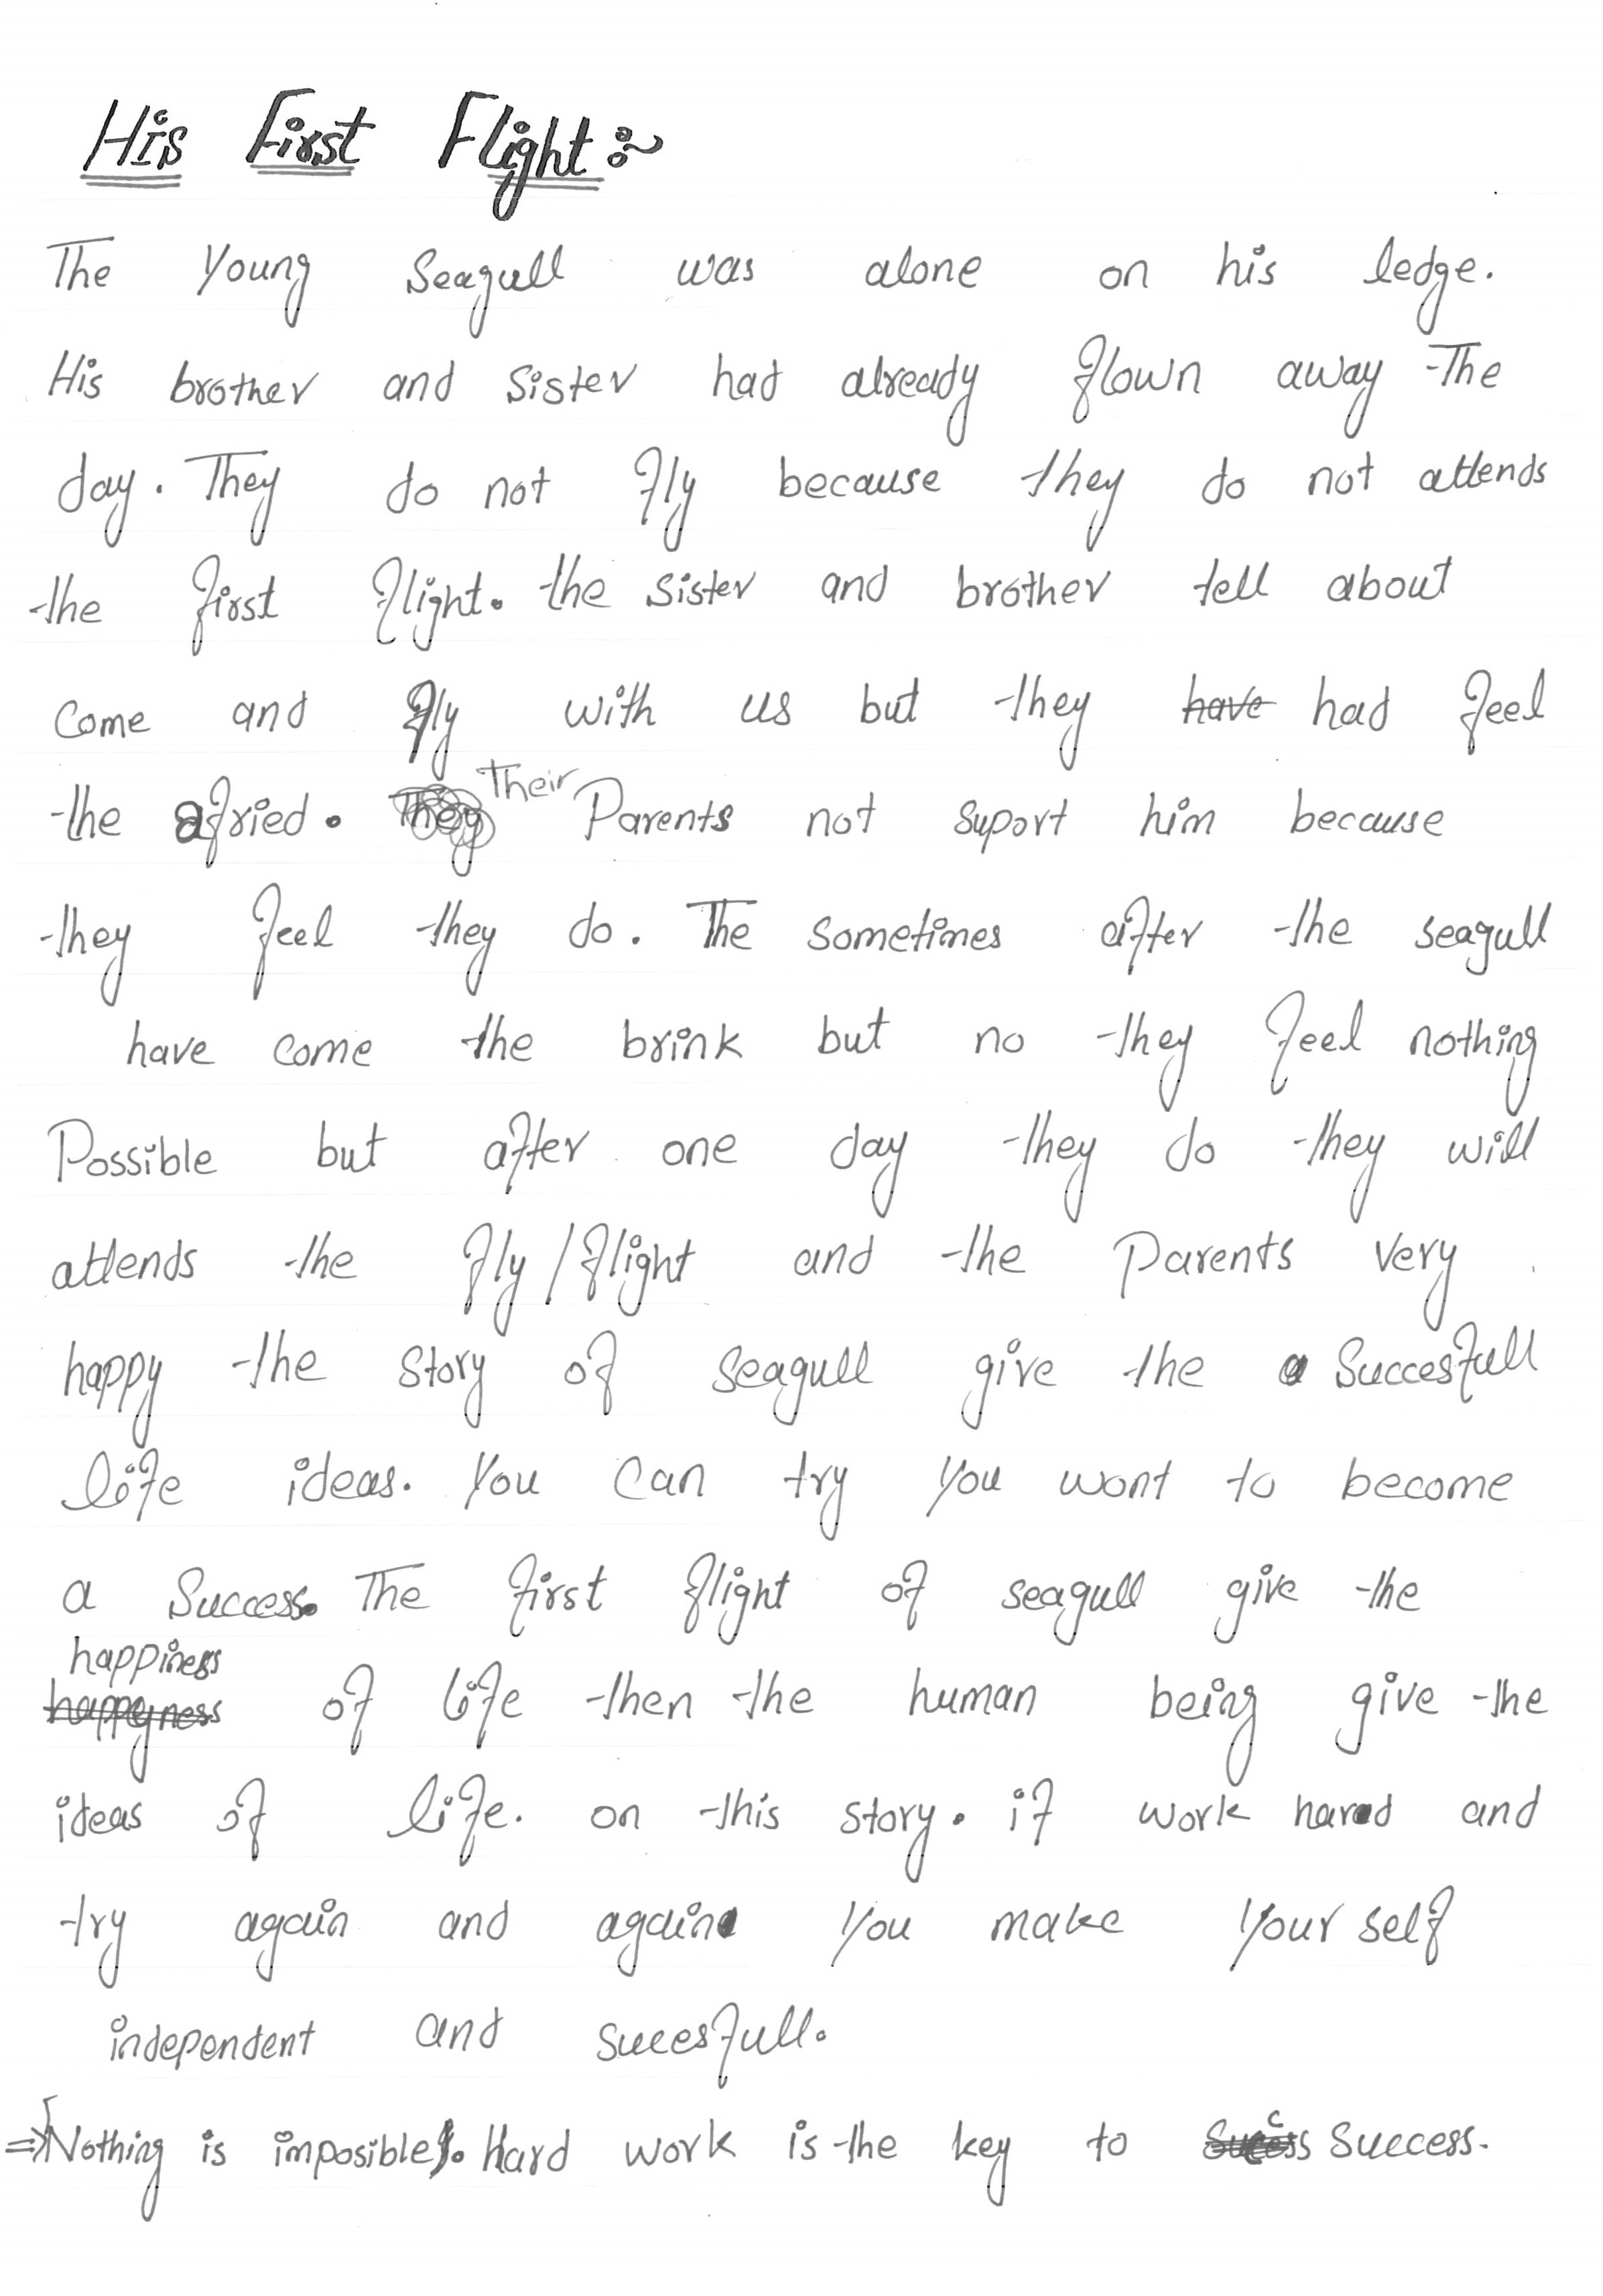 His First Flight:~
The Young Seagull was alone on his ledge.
His brother and Sister had already flown away The
day. They do not fly because they do not attends
the first flight. the Sister and brother tell about
Come and fly with us but they have had feel
the afried. They Their Parents not suport him because
they feel they do. The Sometimes after the seagull
have come the brink but no they feel nothing
Possible but after one day they do they will
attends the fly/flight and the Parents very
happy the story of seagull give the Succesfull
life ideas. You Can try You wont to become
a Success. The first flight of seagull give the
happiness
happyness of life then the human being give the
ideas of life. on this story. if work hared and
try again and again. You make Your self
independent and sucesfull.
⇒ Nothing is imposible. Hard work is the key to Sucess Success.